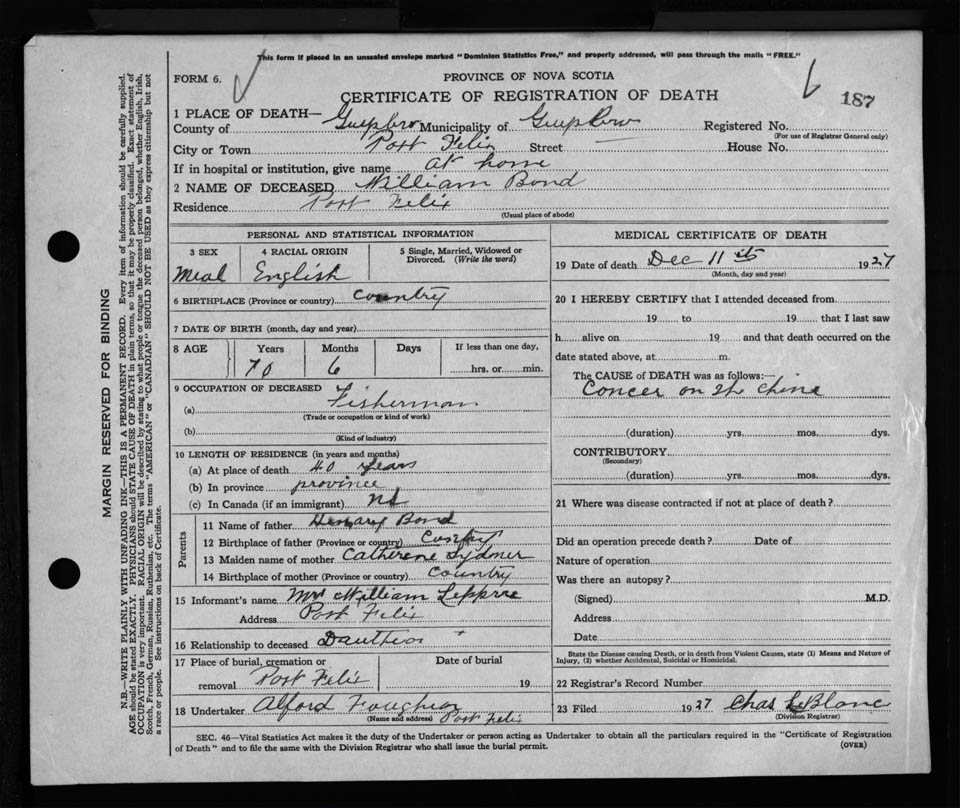 This form if placed in an unsealed envelope marked "Dominion Statistics Free," and properly addressed, will pass through the mails "FREE."
FORM 6.
PROVINCE OF NOVA SCOTIA
CERTIFICATE OF REGISTRATION OF DEATH
187
1 PLACE OF DEATH—
County of Municipality of Registered No.
(For use of Registrar General only)
City or Town Port Felix Street — House No.
If in hospital or institution, give name at home
2 NAME OF DECEASED William Bond
Residence Port Felix
(Usual place of abode)
PERSONAL AND STATISTICAL INFORMATION
3 SEX 4 RACIAL ORIGIN 5 Single, Married, Widowed or Divorced. (Write the word)
Meal English
6 BIRTHPLACE (Province or country) country
7 DATE OF BIRTH (month, day and year)
8 AGE Years Months Days If less than one day,
70 6 hrs. or min.
9 OCCUPATION OF DECEASED
(a) Fisherman
(Trade or occupation or kind of work)
(b)
(Kind of industry)
10 LENGTH OF RESIDENCE (in years and months)
(a) At place of death 40 years
(b) In province province
(c) In Canada (if an immigrant) NS
Parents
11 Name of father Henary Bond
12 Birthplace of father (Province or country)
13 Maiden name of mother Catherene Sydmer
14 Birthplace of mother (Province or country) Country
15 Informant's name Mrs William
Address Port Felix
16 Relationship to deceased
17 Place of burial, cremation or removal Port Felix Date of burial 19
18 Undertaker Alford
(Name and address) Port Felix
MEDICAL CERTIFICATE OF DEATH
19 Date of death Dec 11th 1927
(Month, day and year)
20 I HEREBY CERTIFY that I attended deceased from
19 to 19 that I last saw
h alive on 19 and that death occurred on the
date stated above, at m.
The CAUSE of DEATH was as follows:—
Concer on th chine
(duration) yrs. mos. dys.
CONTRIBUTORY
(Secondary)
(duration) yrs. mos. dys.
21 Where was disease contracted if not at place of death?
Did an operation precede death? Date of
Nature of operation
Was there an autopsy?
(Signed) M.D.
Address
Date
State the Disease causing Death, or in death from Violent Causes, state (1) Means and Nature of
Injury, (2) whether Accidental, Suicidal or Homicidal.
22 Registrar's Record Number
23 Filed 1927 Chas LeBlanc
(Division Registrar)
SEC. 46—Vital Statistics Act makes it the duty of the Undertaker or person acting as Undertaker to obtain all the particulars required in the "Certificate of Registration
of Death" and to file the same with the Division Registrar who shall issue the burial permit.
(OVER)
MARGIN RESERVED FOR BINDING
N.B.—WRITE PLAINLY WITH UNFADING INK—THIS IS A PERMANENT RECORD. Every item of information should be carefully supplied.
AGE should be stated EXACTLY. PHYSICIANS should STATE CAUSE OF DEATH in plain terms, so that it may be properly classified. Exact statement of
OCCUPATION is very important. RACIAL ORIGIN will be described by stating to what people or tongue the deceased person belonged, whether English, Irish,
Scotch, French, German, Russian, Ruthenian, etc. The terms "AMERICAN" or "CANADIAN" SHOULD NOT BE USED as they express citizenship but not
a race or people. See instructions on back of Certificate.